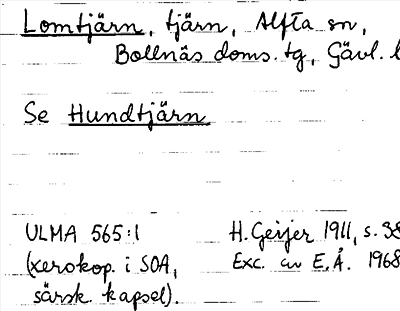 Lomtjärn, tjärn, Alfta sn,
Bollnäs doms. tg, Gävl. l
Se Hundtjärn
ULMA 565:1 H. Geijer 1911, s. 38
(xerokop. i SOA, Exc. av E.Å. 1968
särsk. kapsel).